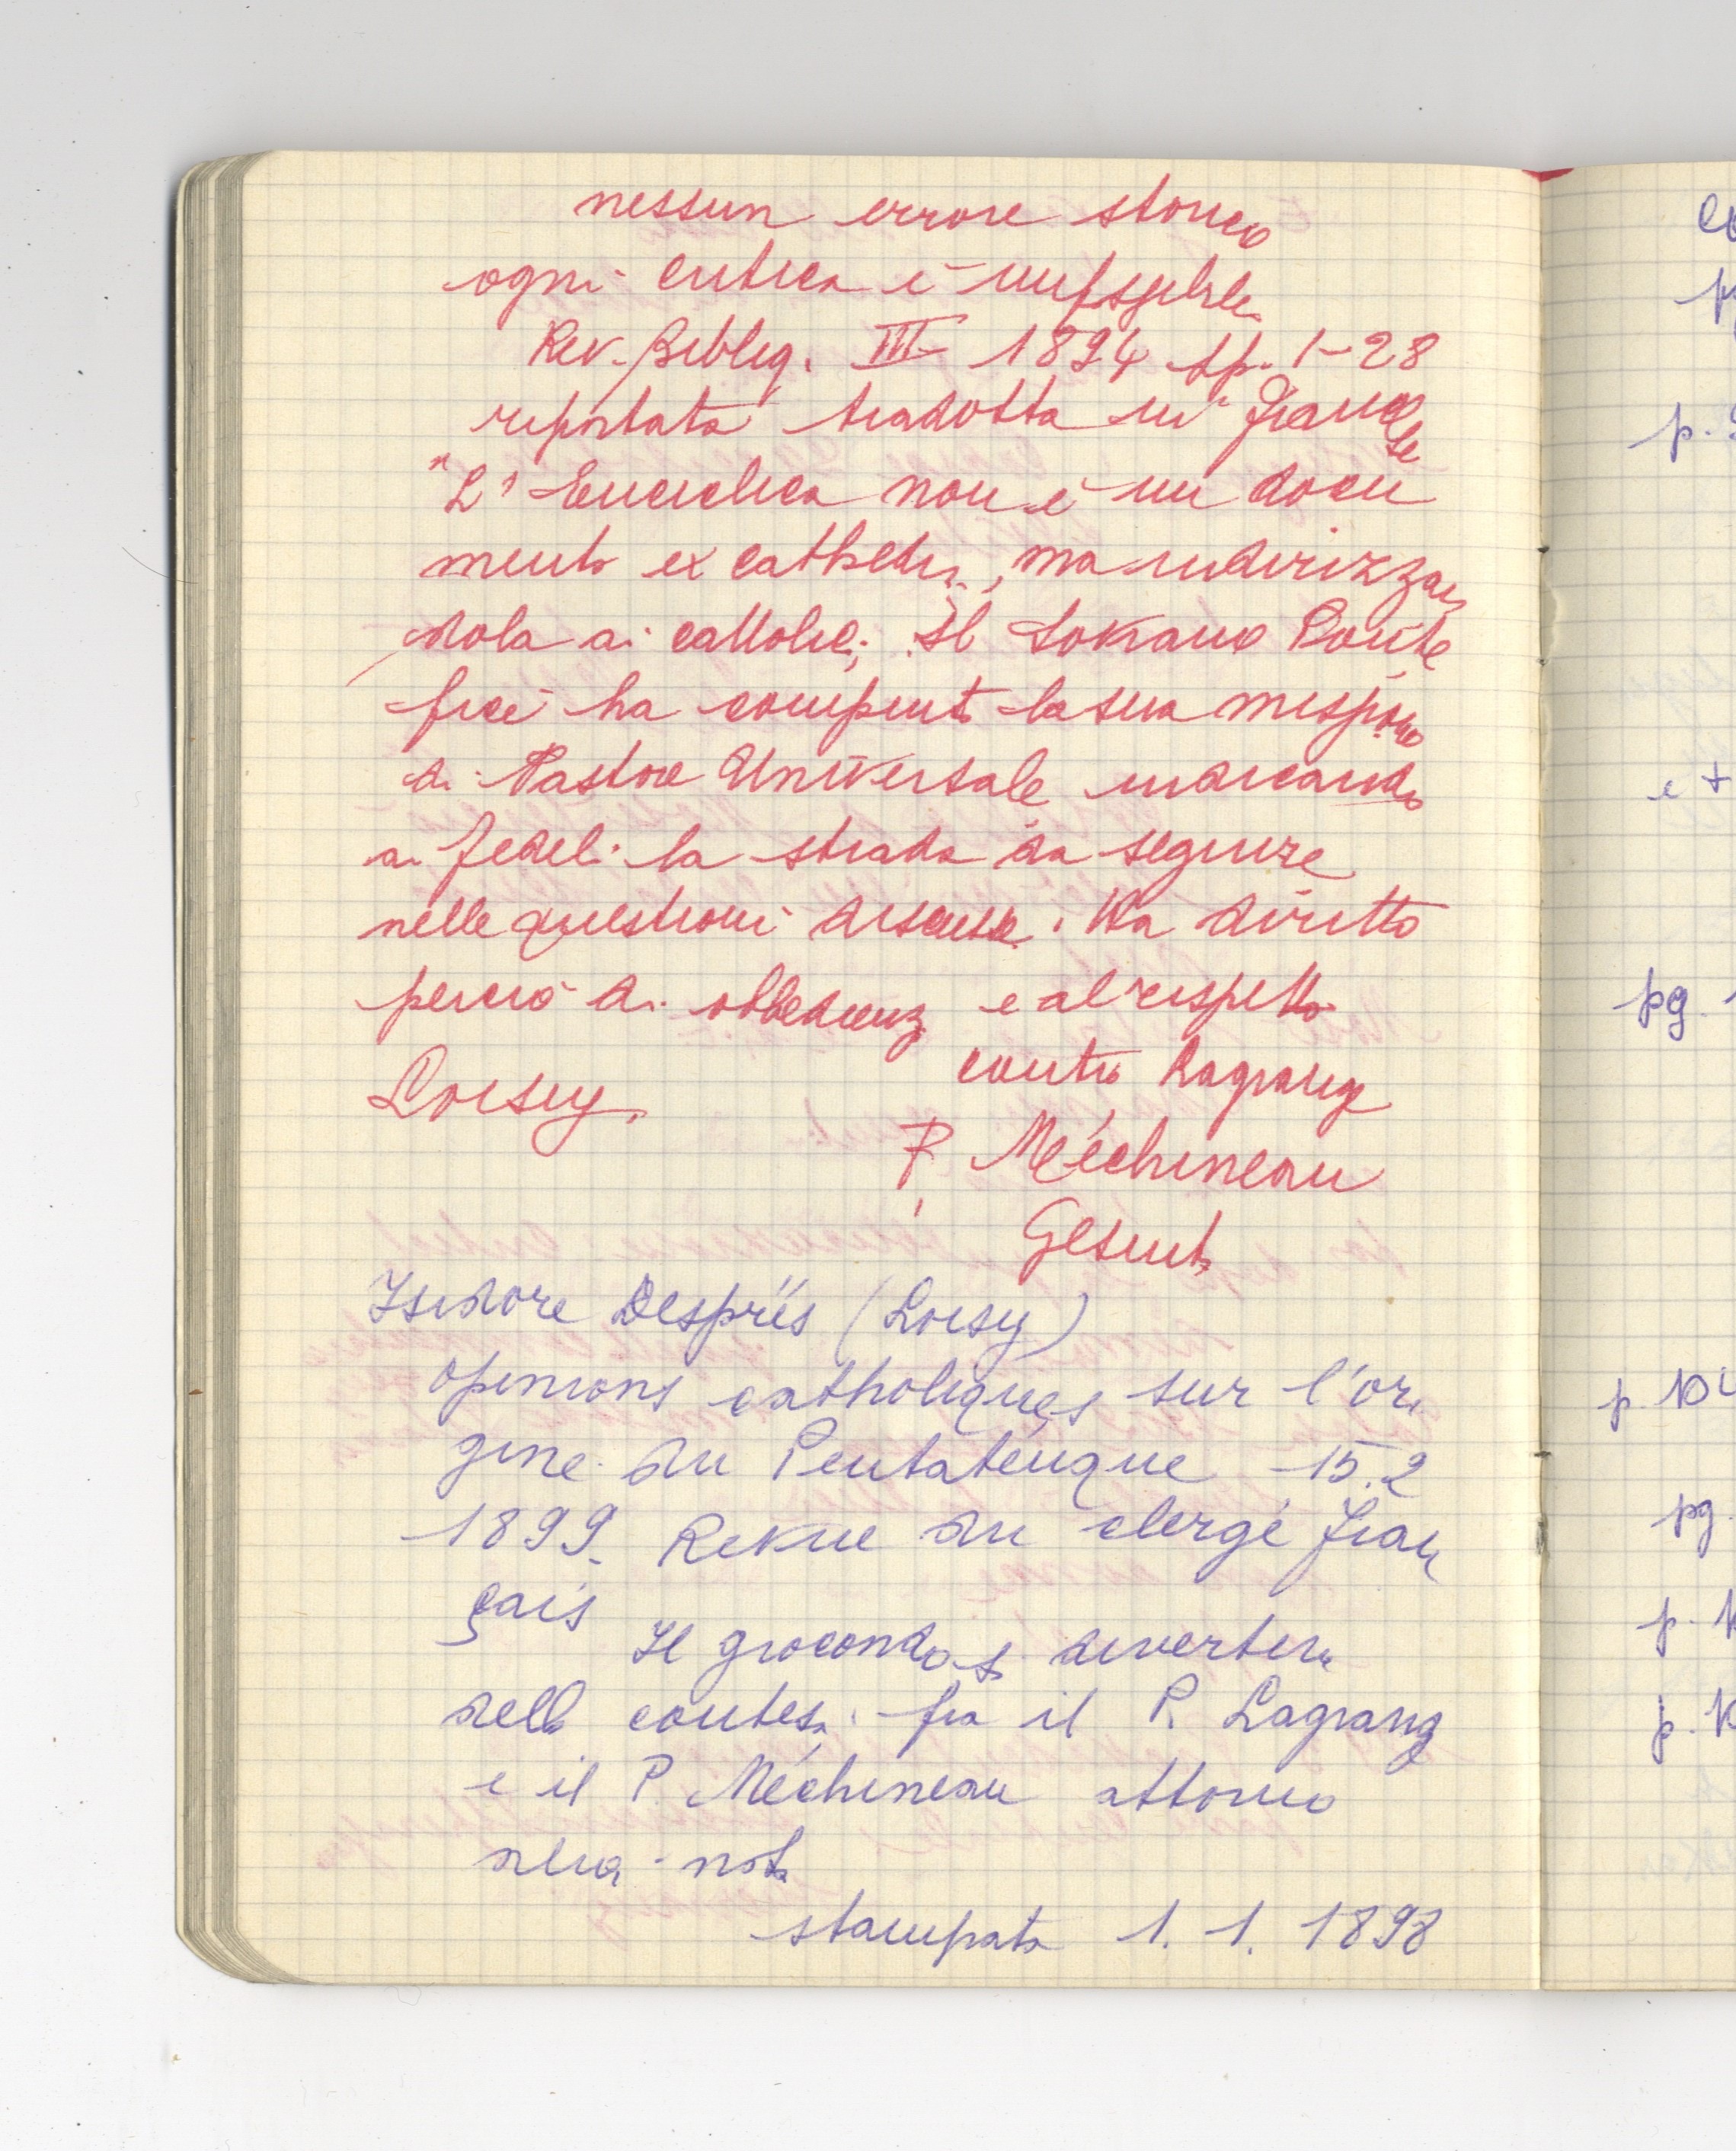 nessun errore storico
ogni critica è impossibile
Rev. Bibliq. III 1894 pp. 1-28
riportata tradotta in francese
"L'Enciclica non è un docu
mento ex cathedra, ma indirizzan
dola ai cattolici, Il Sovrano Ponte
fice ha compiuto la sua missione
di Pastore Universale indicando
ai fedeli la strada da seguire
nelle questioni discusse. Ha diritto
perciò di obbedienza e al rispetto
contro Lagrange
Loisy.
P. Méchineau
Gesuita
Isidore Després (Loisy)
opinions catholiques sur l'ori
gine du Pentateuque 15.2
1899. Revue du clergé fran
çais
Il giocondo si divertiva
nella contesa fra il P. Lagrange
e il P. Méchineau attorno
nota
stampata 1. 1. 1898
co
p. 
e +
pg. 1
p. 104
pg.
p. 1
p. 1